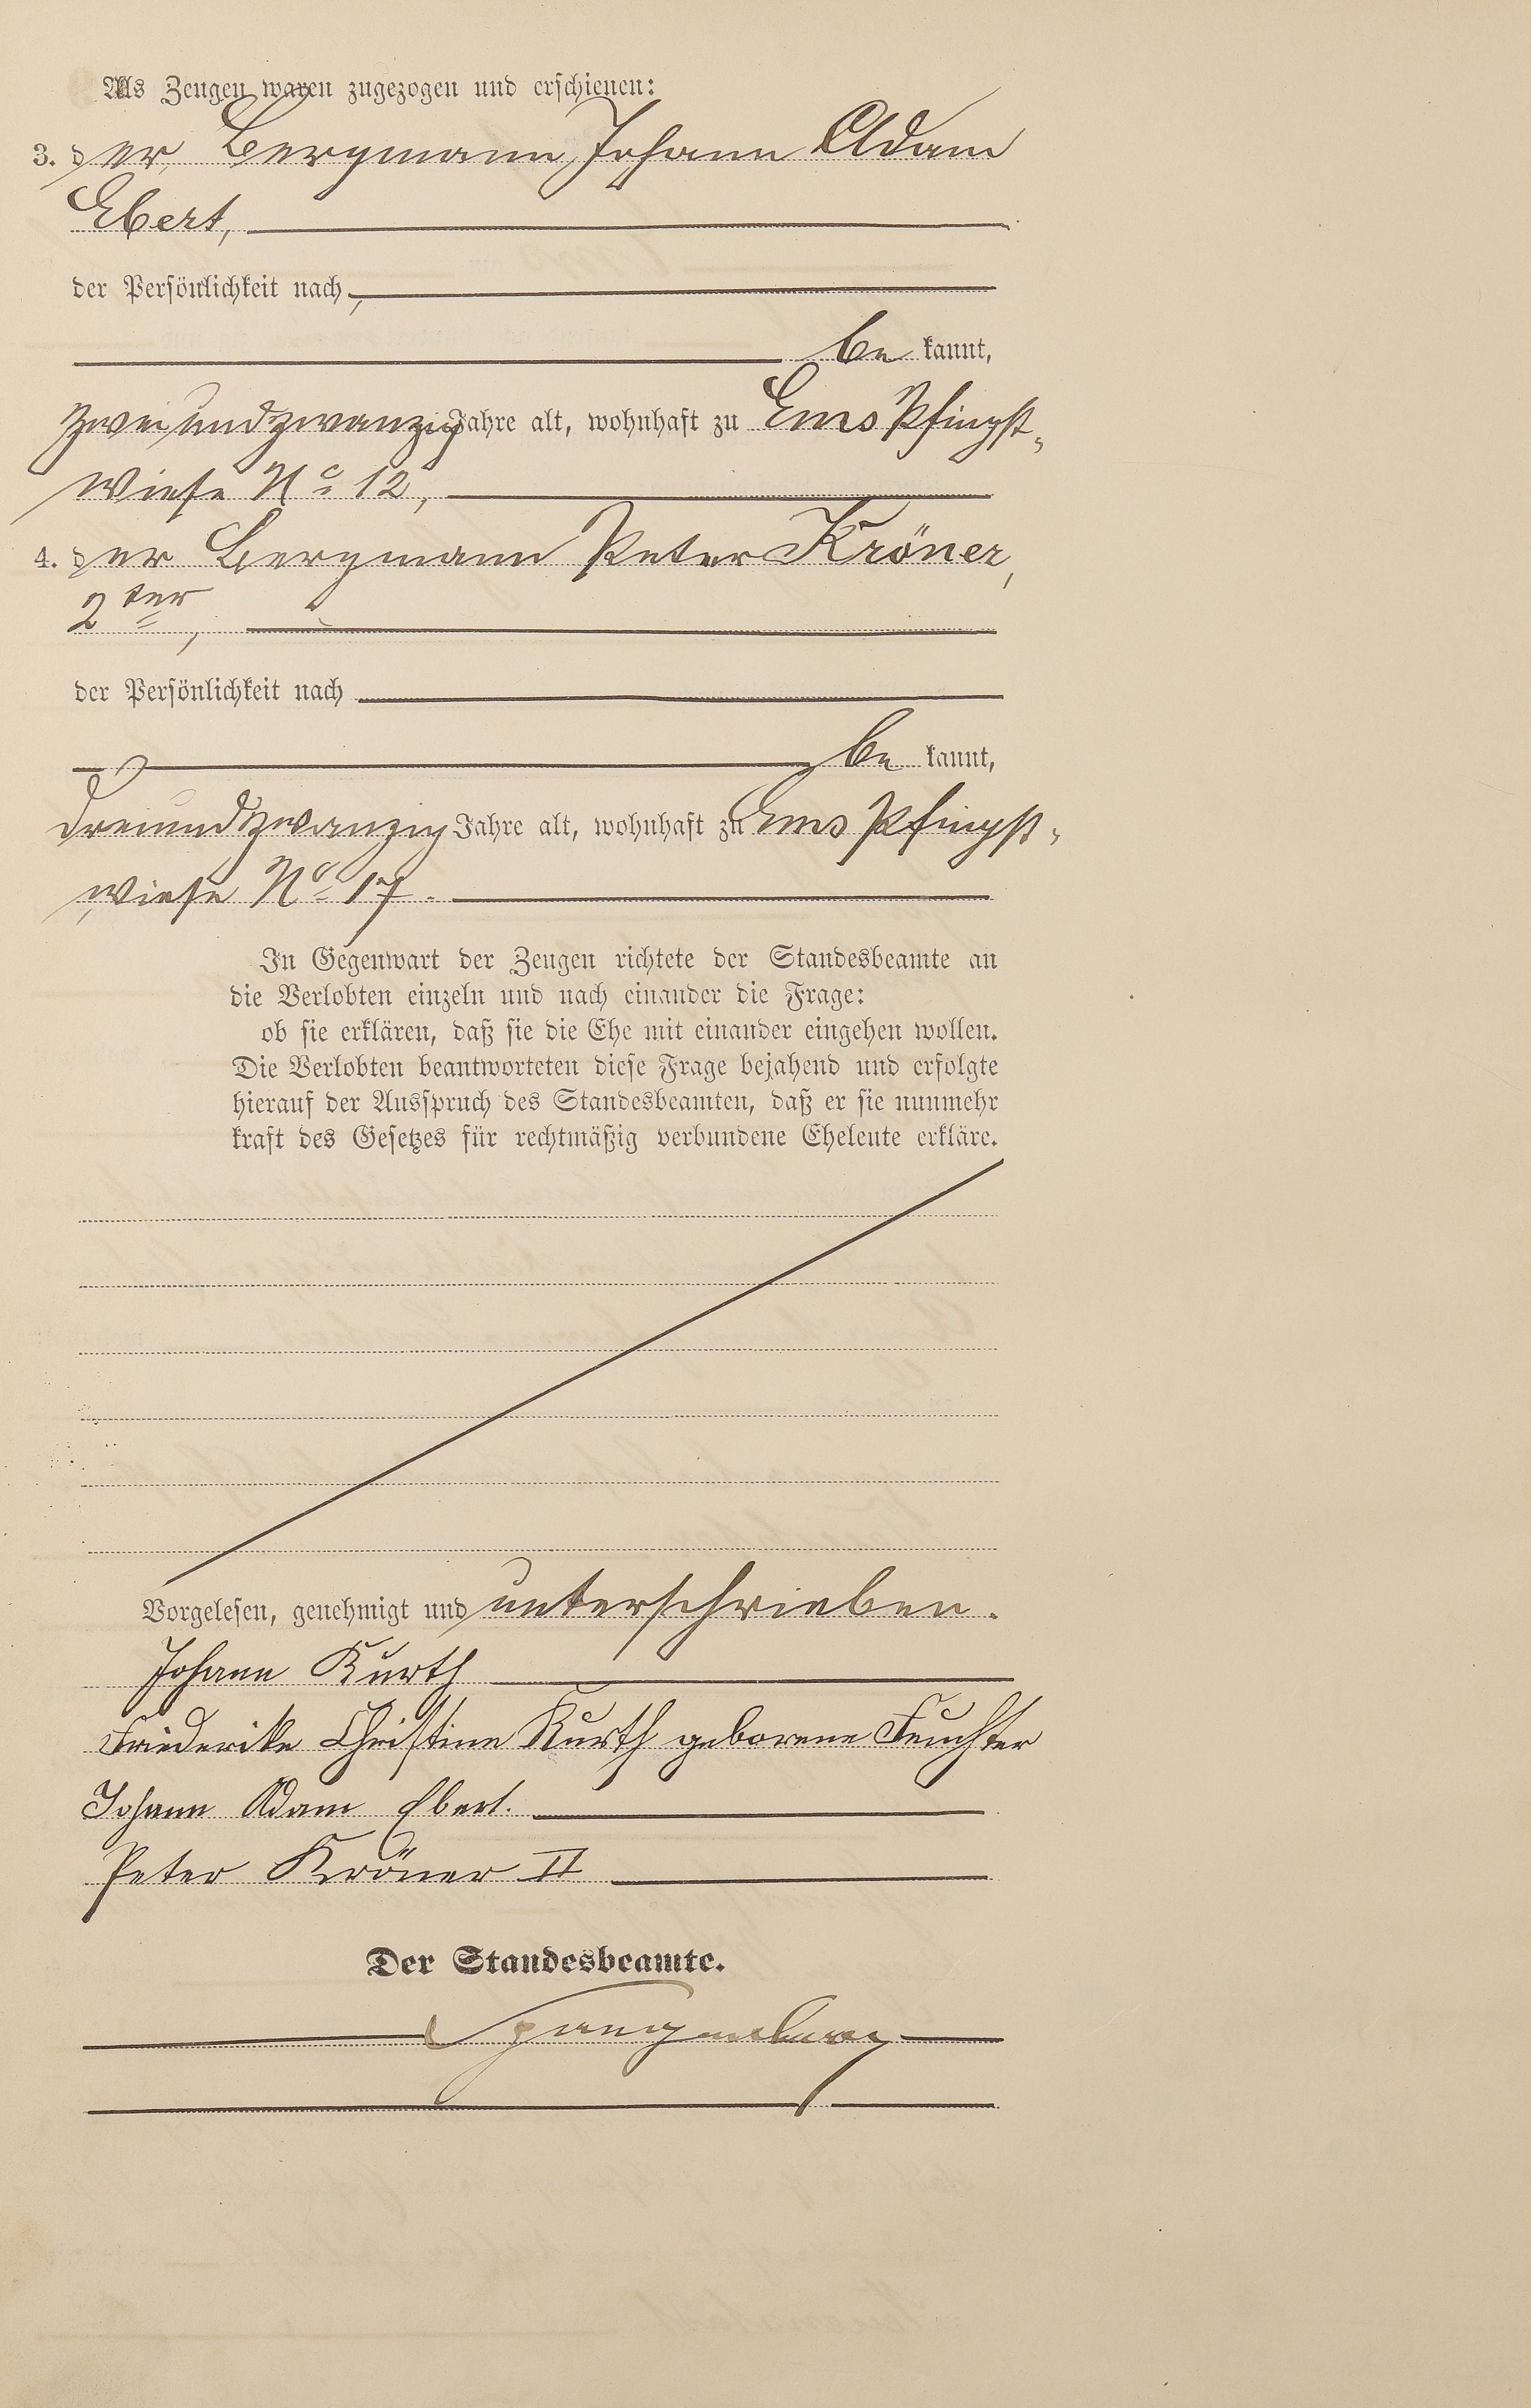 Als Zeugen waren zugezogen und erschienen:
3. der Bergmann Johann Adam
Ebert,
der Persönlichkeit nach,
be kannt,
zweiundzwanzig Jahre alt, wohnhaft zu Ems Pfingst-
wiese No 12,
4. der Bergmann Peter Kröner,
2ter,
der Persönlichkeit nach
be kannt,
dreiundzwanzig Jahre alt, wohnhaft zu Ems Pfingst-
wiese No 17.
In Gegenwart der Zeugen richtete der Standesbeamte an
die Verlobten einzeln und nach einander die Frage:
ob sie erklären, daß sie die Ehe mit einander eingehen wollen.
Die Verlobten beantworteten diese Frage bejahend und erfolgte
hierauf der Ausspruch des Standesbeamten, daß er sie nunmehr
kraft des Gesetzes für rechtmäßig verbundene Eheleute erkläre.
Vorgelesen, genehmigt und unterschrieben.
Johann Kurth
Friederike Christine Kurth geborene Feuchter
Johann Adam Ebert.
Peter Kröner II
Der Standesbeamte.
Spangenberg